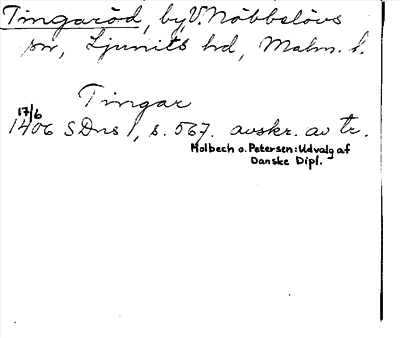 Tingaröd, by, V. Nöbbelövs
sn, Ljunits hd, Malm. l.
Tingar
17/6
1406 SDns 1, s. 567. avskr. av tr.
Molbech o. Petersen: Udvalg af
Danske Dipl.